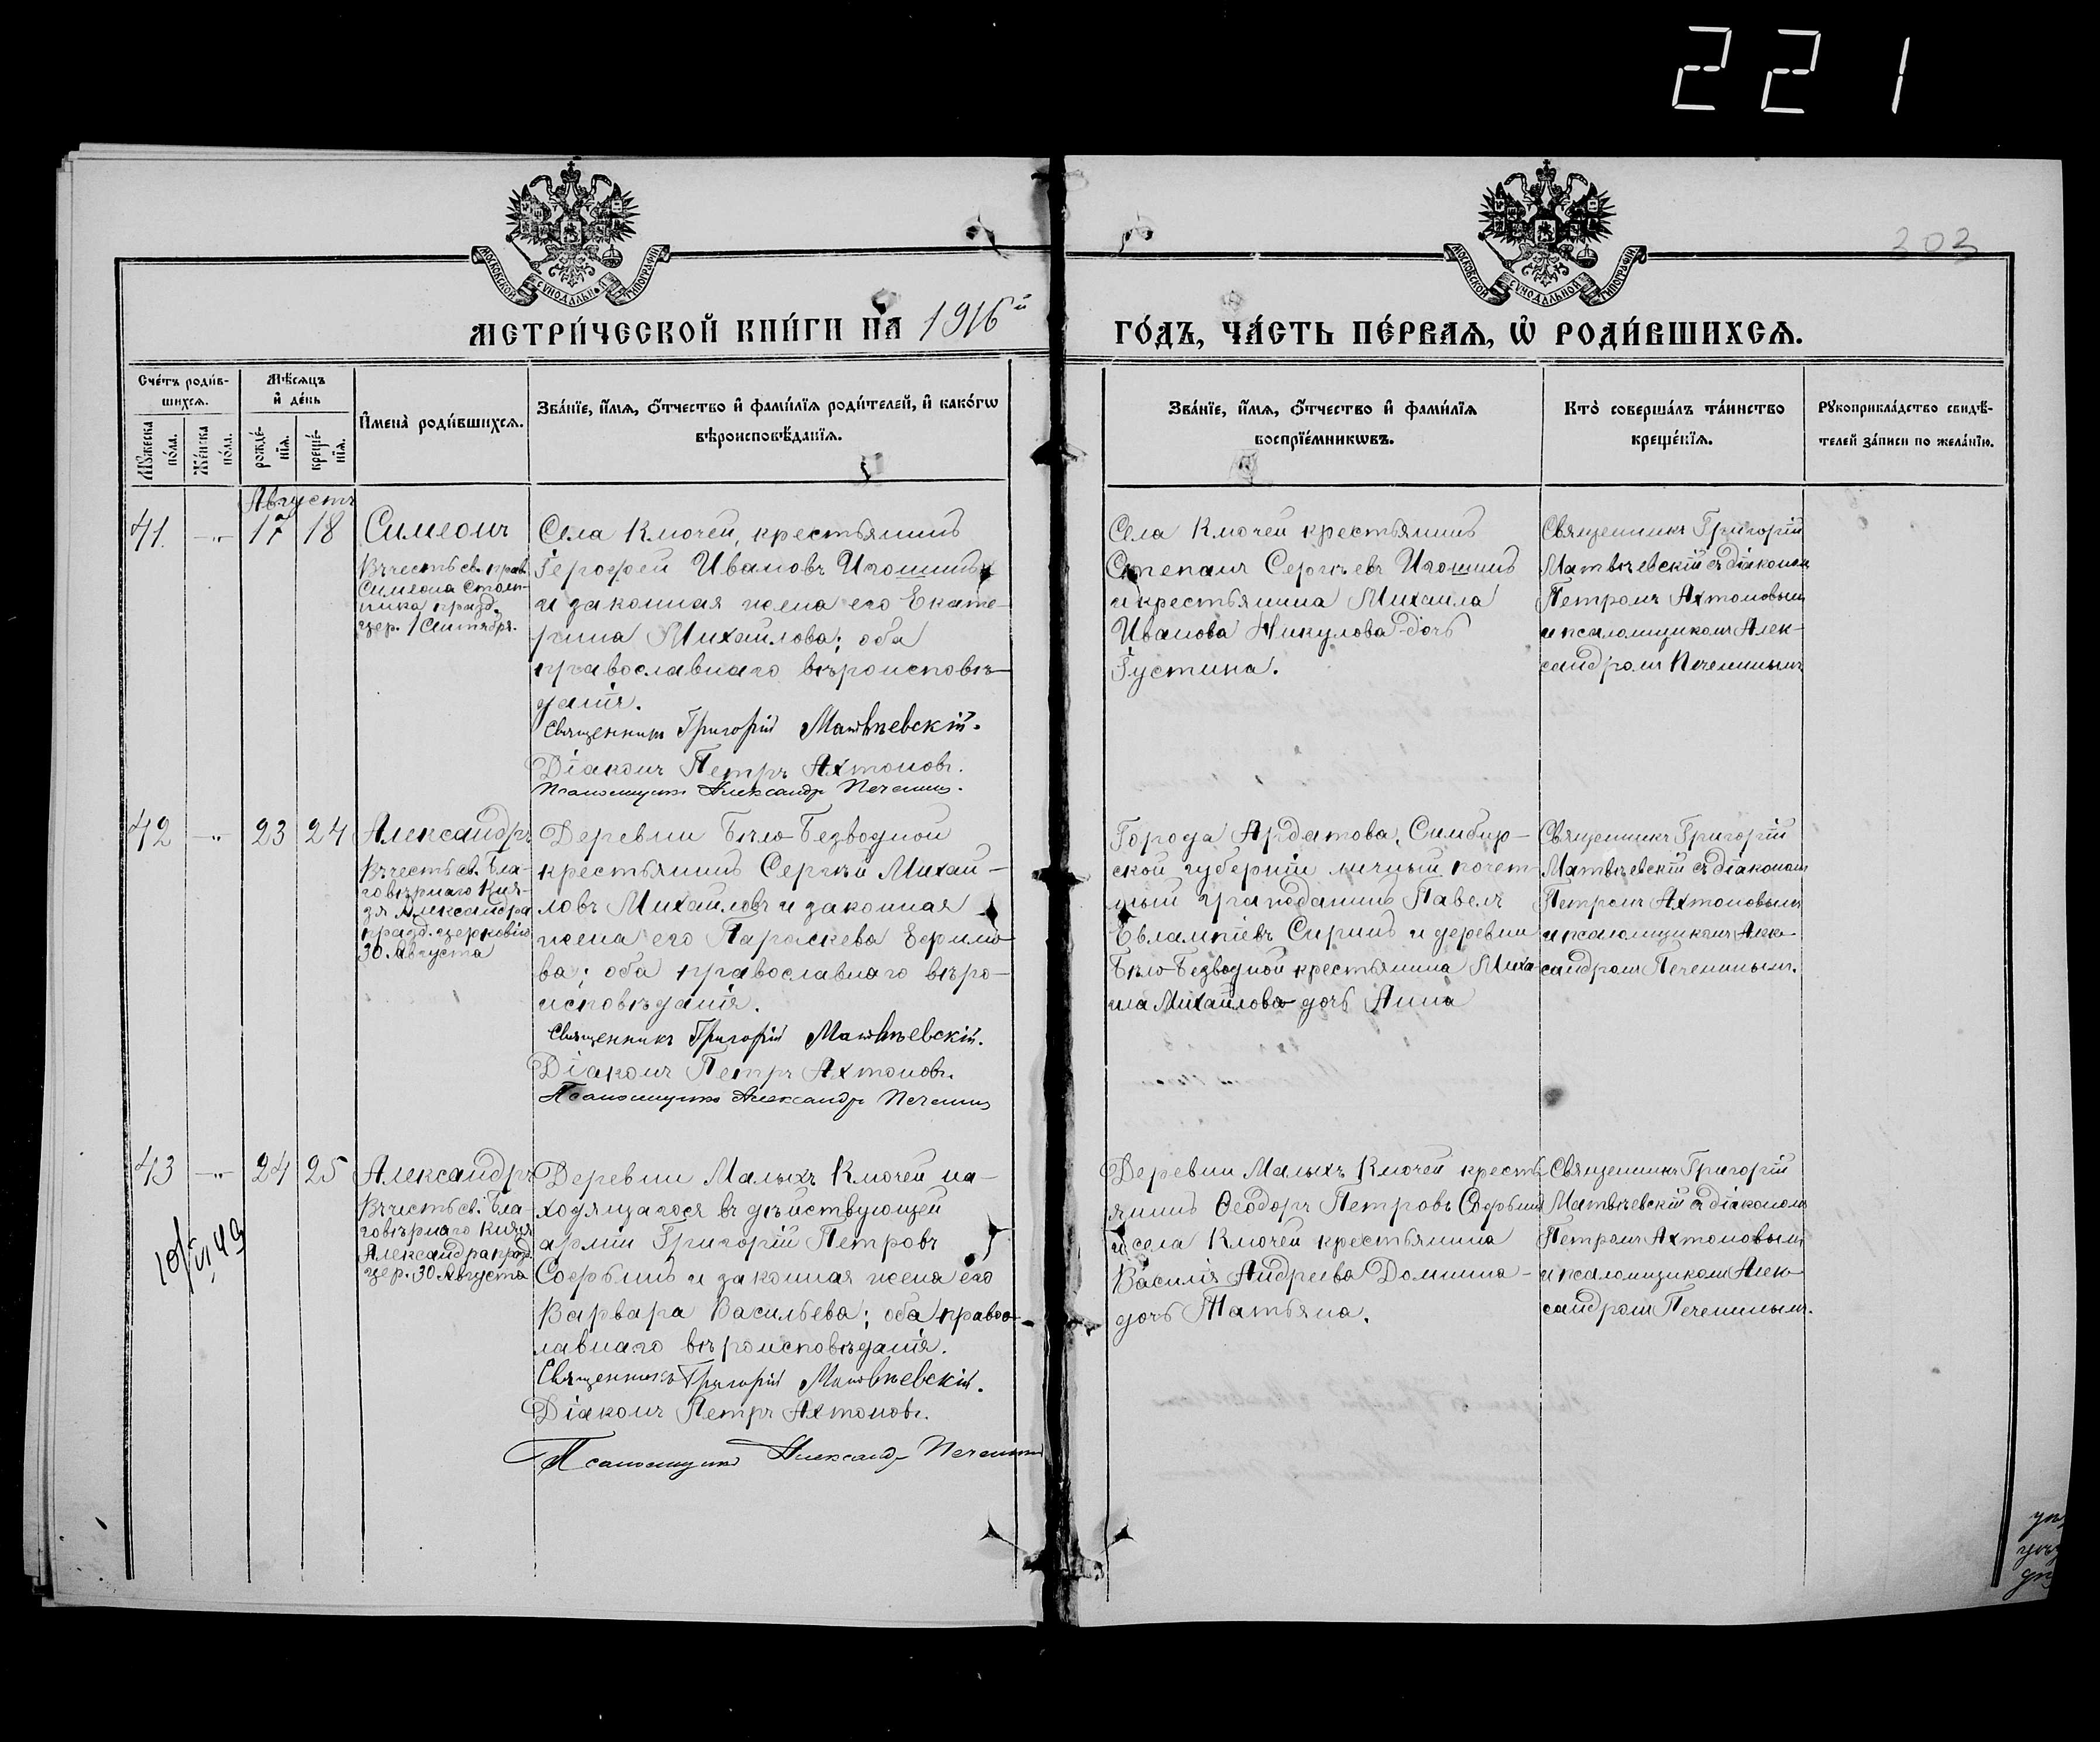 221
303
МОСКОВСКОЙ СУНОДАЛЬНОЙ ТИПОГРАФІИ
МОСКОВСКОЙ СУНОДАЛЬНОЙ ТИПОГРАФІИ
МЕТРИ́ЧЕСКОЙ КНИ́ГИ НА 1916й
ГО́ДЪ, ЧА́СТЬ ПЕ́РВАѦ, Ѽ РОДИ́ВШИХСѦ.
Сче́тъ роди́в-
шихсѧ.
Мѣ́сѧцъ
и҆ де́нь
И҆мена̀ роди́вшихсѧ.
Зва́нїе, и҆́мѧ, ѻ҆́тчество и҆ фами́лїѧ роди́телей, и҆ како́гѡ
вѣроисповѣ́данїѧ.
Мꙋ́жеска по́ла.
Же́нска по́ла.
рожде́-
нїѧ.
креще́-
нїѧ.
Зва́нїе, и҆́мѧ, ѻ҆́тчество и҆ фами́лїѧ
воспрїе́мникѡвъ.
Кто̀ соверша́лъ та́инство
креще́нїѧ.
Рꙋкоприкла́дство свидѣ́-
телей за́писи по жела́нїю.
Августъ
41. -"- 17 18 Симеонъ
Въ честь св. прав.
Симеона Столп-
ника празд.
цер. 1 Сентября.
Села Ключей, крестьянинъ
Герофей Ивановъ Игошинъ
и законная жена его Екате-
рина Михайлова; оба
православнаго вѣроисповѣ-
данія.
Священникъ Григорій Матвѣевскій.
Діаконъ Петръ Ахтоновъ.
Псаломщикъ Александръ Печенинъ.
Села Ключей крестьянинъ
Степанъ Сергѣевъ Игошинъ
и крестьянина Михаила
Иванова Никулова дочь
Густина.
Священникъ Григорій
Матвѣевскій съ діакономъ
Петромъ Ахтоновымъ
и псаломщикомъ Алек-
сандромъ Печенинымъ
42 -"- 23 24 Александръ
Въ честь св. Бла-
говѣрнаго Кня-
зя Александра
празд. церковію
30 Августа
Деревни Бѣло-Безводной
крестьянинъ Сергѣй Михай-
ловъ Михайловъ и законная
жена его Параскева Ефимо-
ва; оба православнаго вѣро-
исповѣданія.
Священникъ Григорій Матвѣевскій.
Діаконъ Петръ Ахтоновъ.
Псаломщикъ Александръ Печенинъ
Города Ардатова, Симбир-
ской губерніи личный почет-
ный гражданинъ Павелъ
Евлампіевъ Сиринъ и деревни
Бѣло-Безводной крестьянина Миха-
ила Михайлова дочь Анна
Священникъ Григорій
Матвѣевскій съ діакономъ
Петромъ Ахтоновымъ
и псаломщикомъ Алек-
сандромъ Печенинымъ.
43 -"- 24 25 Александръ
Въ честь св. Бла-
говѣрнаго Князя
Александра празд.
цер. 30 Августа
10/VI 49
Деревни Малыхъ Ключей на-
ходящагося въ дѣйствующей
арміи Григорій Петровъ
и законная жена его
Варвара Васильева; оба правос-
лавнаго вѣроисповѣданія.
Священникъ Григорій Матвѣевскій.
Діаконъ Петръ Ахтоновъ.
Псаломщикъ Александръ Печенинъ
Деревни Малыхъ Ключей кресть-
янинъ Ѳеодоръ Петровъ
и села Ключей крестьянина
Василія Андреева Домнина
дочь Татьяна.
Священникъ Григорій
Матвѣевскій съ діакономъ
Петромъ Ахтоновымъ
и псаломщикомъ Алек-
сандромъ Печенинымъ.